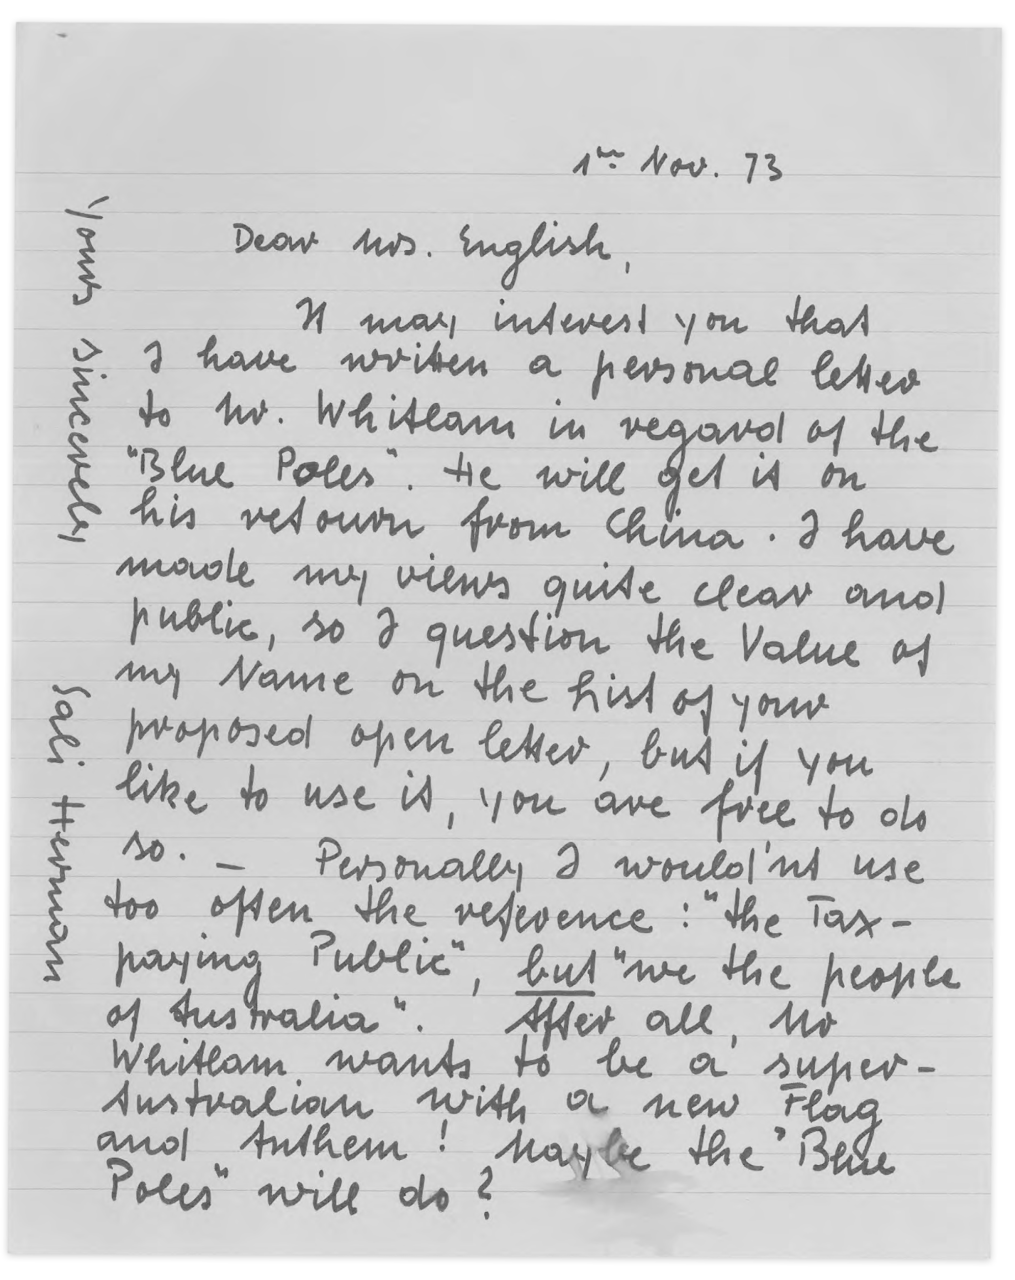 1st Nov. 73
Dear Mrs. English,
It may interest you that
I have written a personal letter
to Mr. Whitlam in regard of the
"Blue Poles". He will get it on
his retourn from China. I have
made my views quite clear and
public, so I question the Value of
my Name on the List of your
proposed open letter, but if you
like to use it, you are free to do
so. — Personally I would'nt use
too often the reference: "the Tax-
paying Public", but "we the people
of Australia". After all, Mr
Whitlam wants to be a super-
Australian with a new Flag
and Anthem! Maybe the "Blue
Poles" will do?
Yours sincerely
Sali Herman